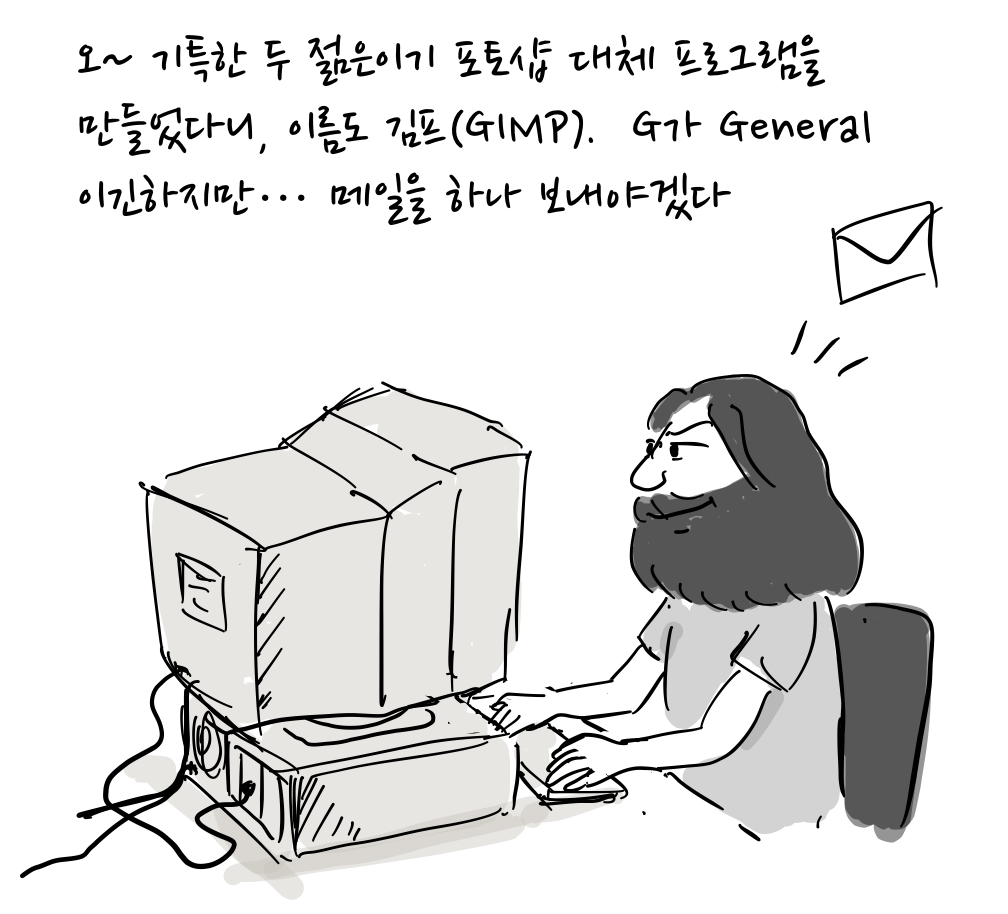 오~ 기특한 두 젊은이기 포토샵 대체 프로그램을
만들었다니, 이름도 김프(GIMP). G가 General
이긴하지만... 메일을 하나 보내야겠다